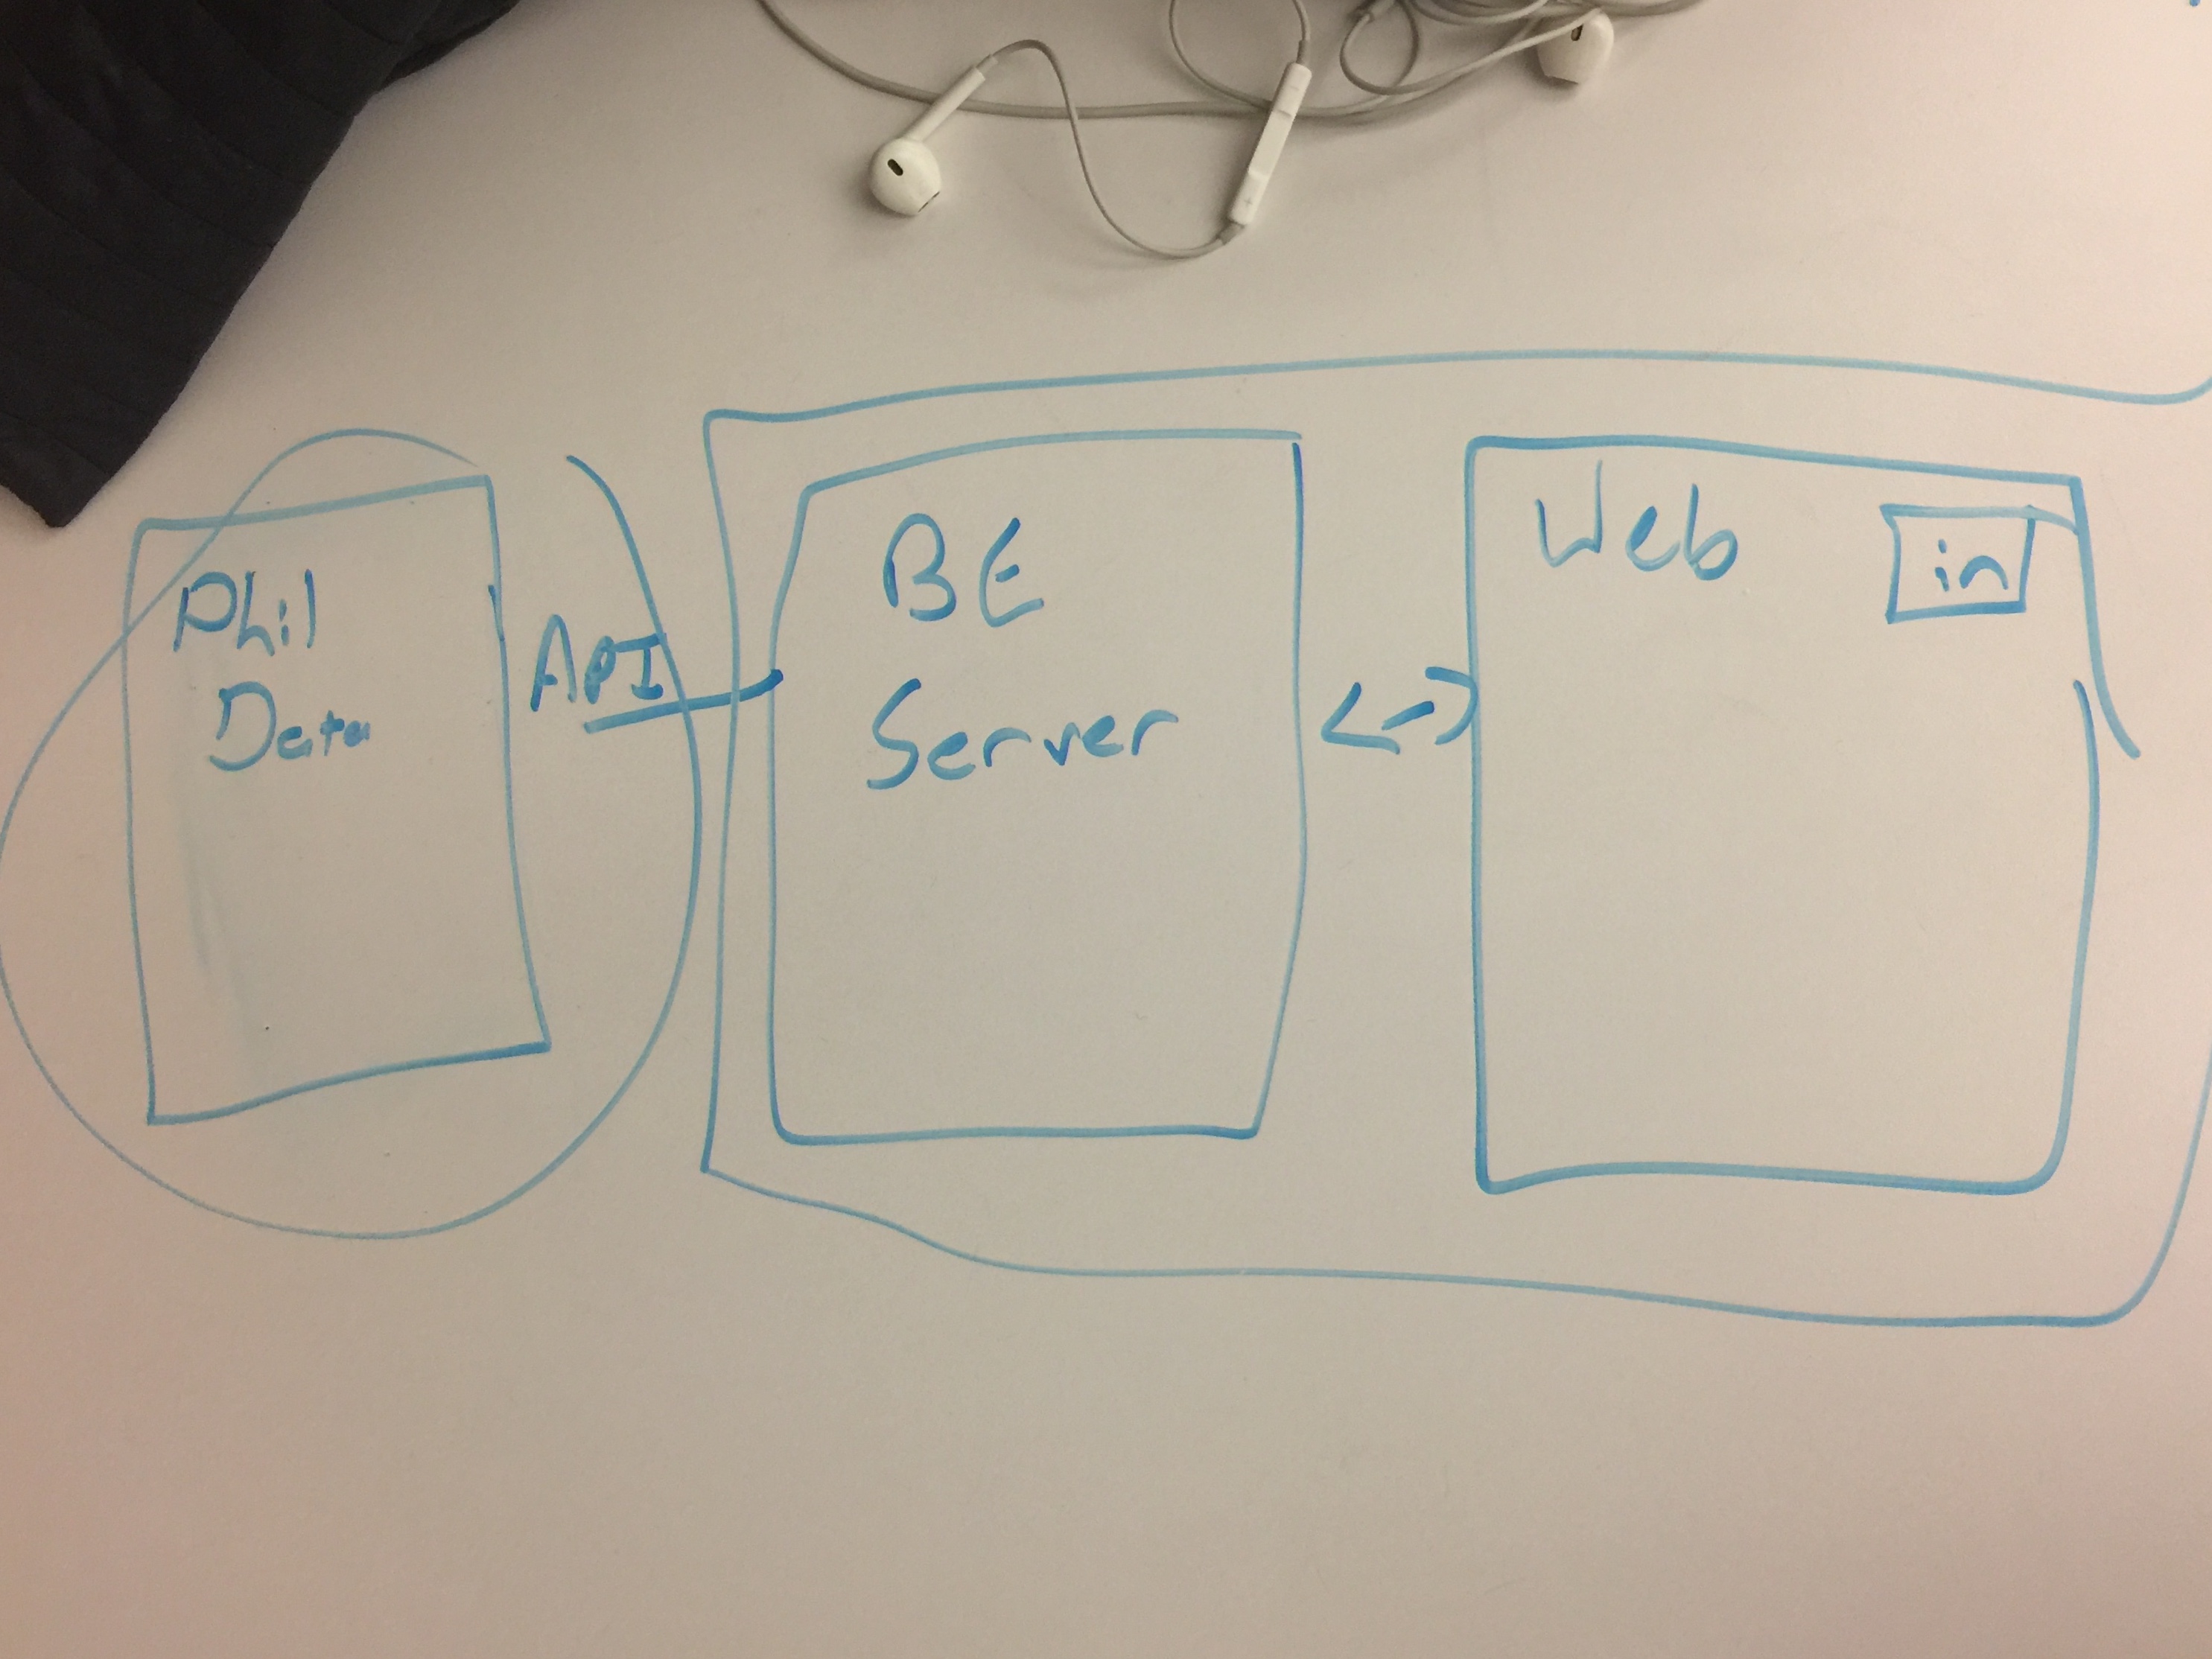 Phil
Data
API
BE
Server
<->
Web
in